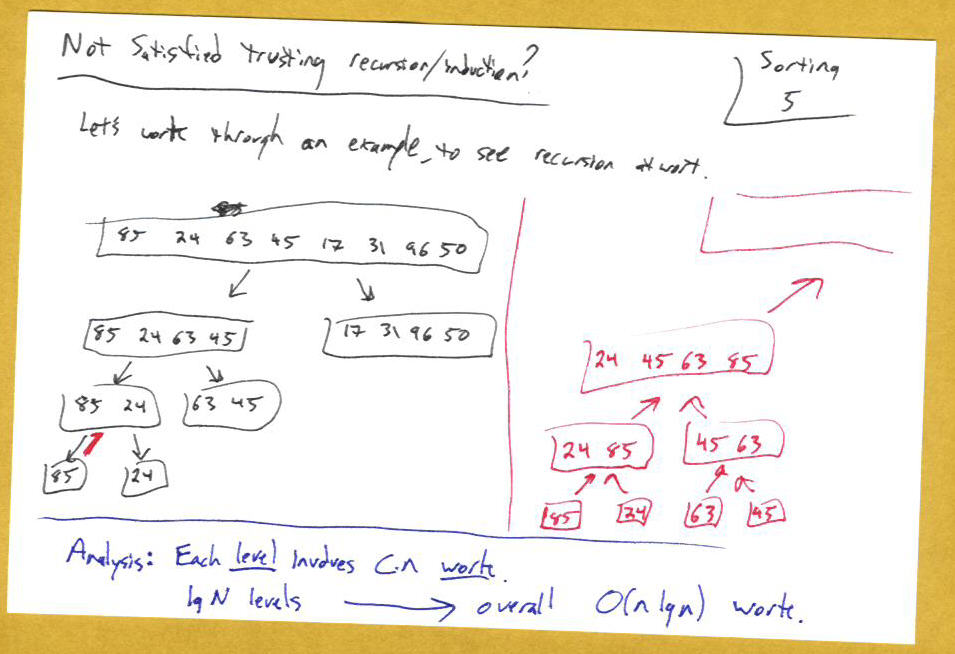 Not Satisfied trusting recursion/induction?
Sorting
5
Let's work through an example, to see recursion at work.
85 24 63 45 17 31 96 50
85 24 63 45
17 31 96 50
85 24
63 45
85
24
24 45 63 85
24 85
45 63
85
24
63
45
Analysis: Each level Involves C·n work.
lg N levels → overall O(n lg n) work.